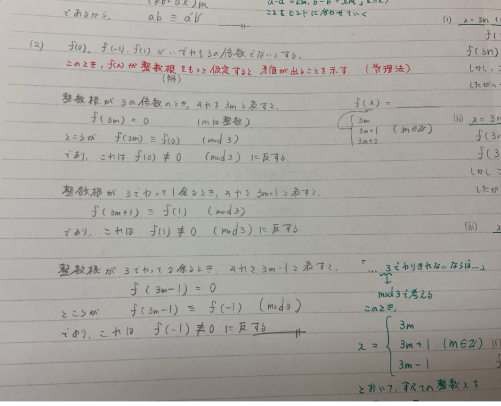 であるから、 ab ≡ a'b'
(2) f(0), f(-1), f(1) がいずれも3の倍数でないとする.
このとき, f(x) が整数根をもつと仮定すると矛盾が出ることを示す (背理法)
(解)
整数根が3の倍数のとき, それを3mと表すと.
f(3m) = 0 (mは整数)
ところが f(3m) ≡ f(0) (mod 3)
であり, これは f(0) ≢ 0 (mod 3) に反する
整数根が3でわって1余るとき, それを3m+1と表すと.
f(3m+1) ≡ f(1) (mod 3)
であり, これは f(1) ≢ 0 (mod 3) に反する
整数根が3でわって2余るとき, それを3m-1と表すと.
f(3m-1) = 0
ところが f(3m-1) ≡ f(-1) (mod 3)
であり, これは f(-1) ≢ 0 に反する
f(x) =
3m
3m+1 (m∈ℤ)
3m+2
「... 3でわりきれないならば...」
mod 3で考える
このとき,
x = { 3m
3m+1 (m∈ℤ)
3m-1
とおいて, すべての整数xを
(i) x = 3m
f(3m)
しかし,
したがっ
(ii) x = 3m
f(3
f(3
しかし
したが
(iii)